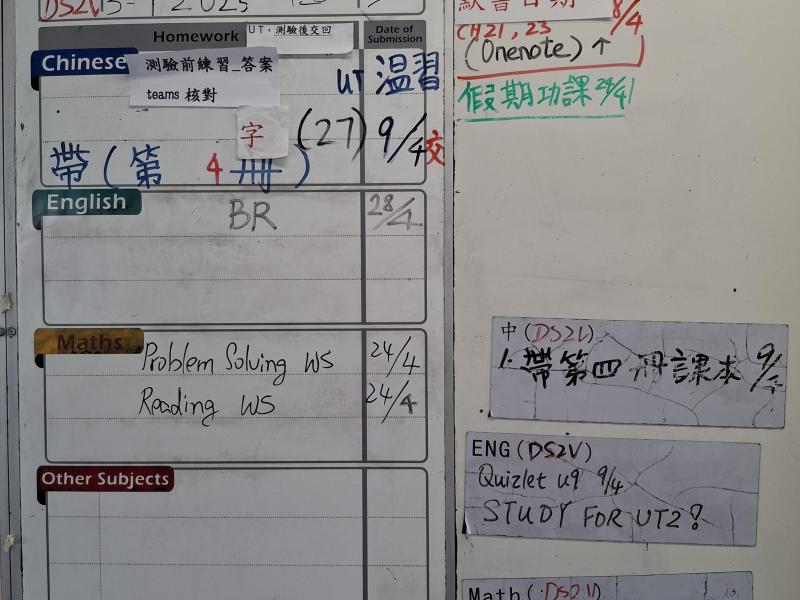 Homework
UT，測驗後交回
Date of Submission
Chinese
測驗前練習_答案
teams 核對
UT 温習
字 (27) 9/4 交
帶 (第 4 冊)
English
BR 28/4
Maths
Problem Solving WS 24/4
Reading WS 24/4
Other Subjects
默書日期 8/4
CH21, 23
(Onenote) ↑
假期功課 24/4
中 (DS2V)
1. 帶第四冊課本 9/4
ENG (DS2V)
Quizlet u9 9/4
STUDY FOR UT2?